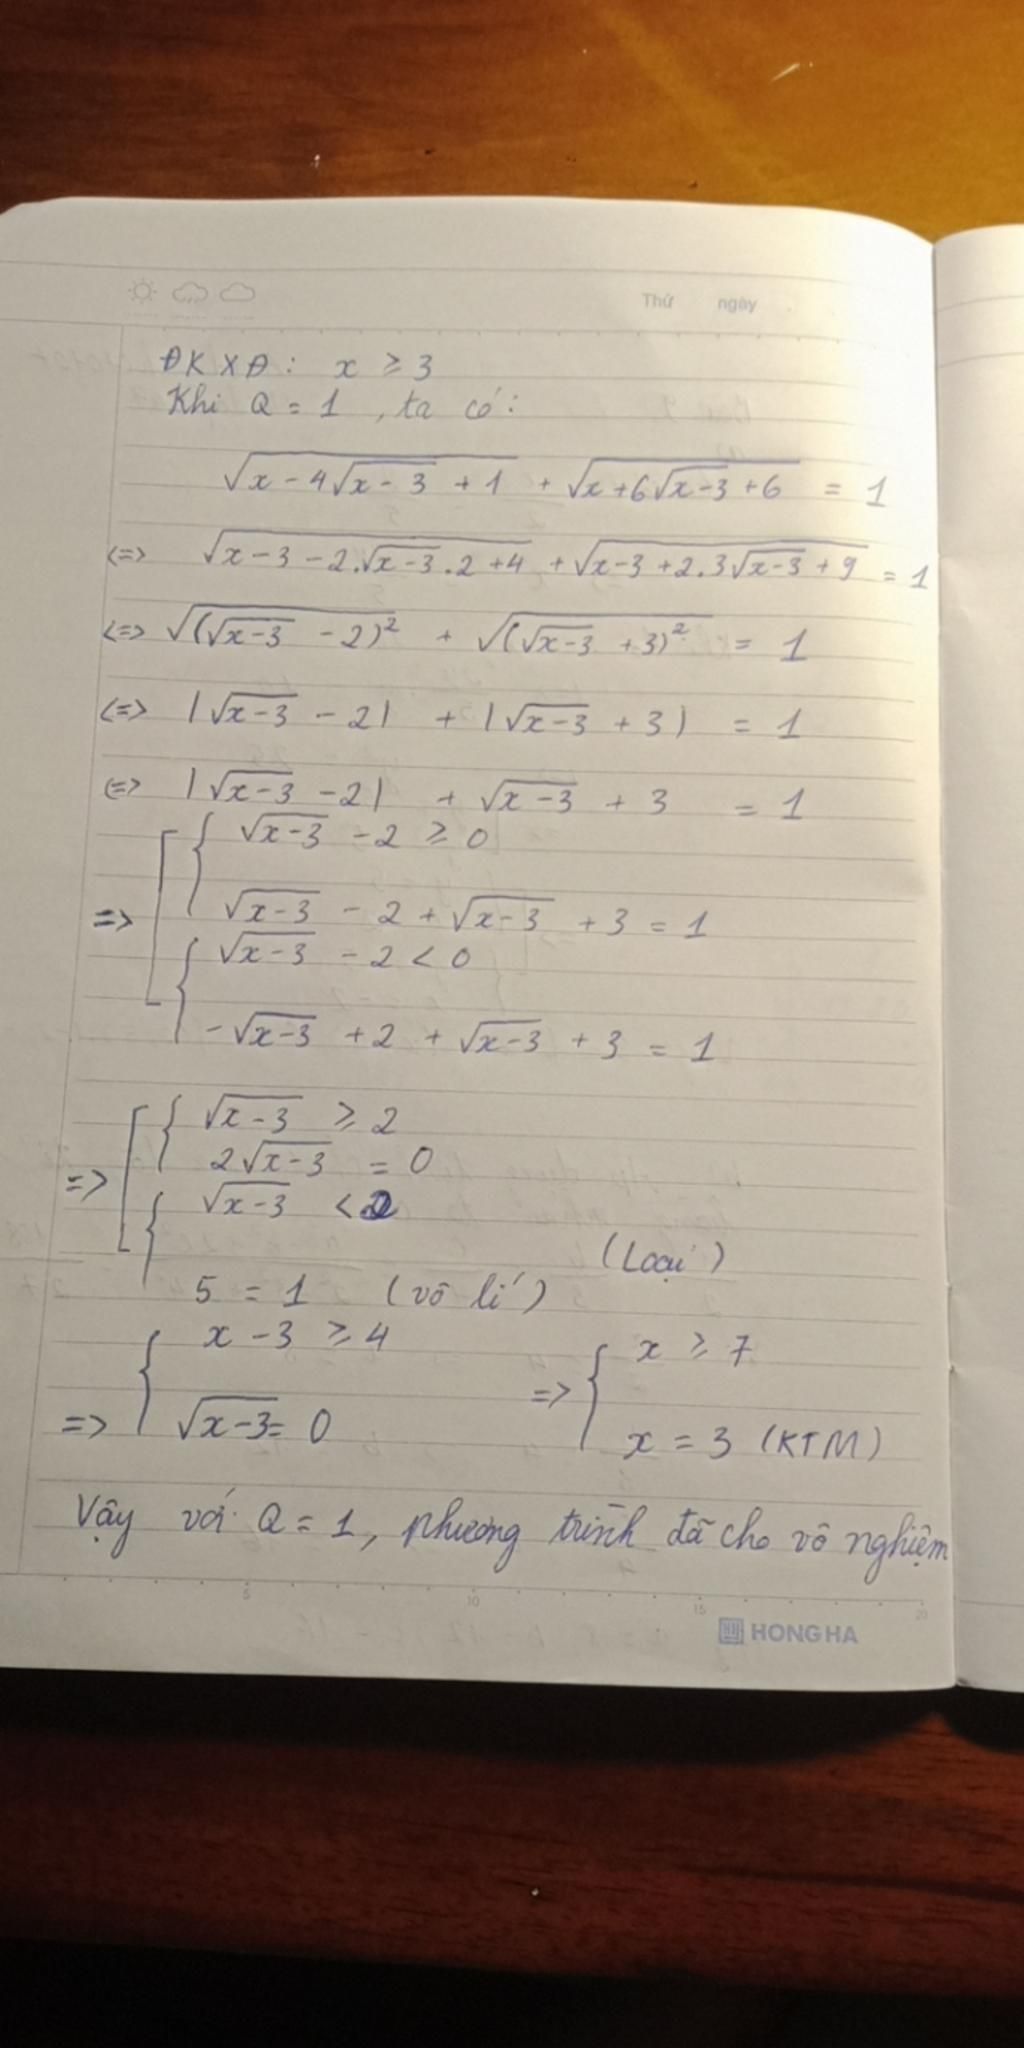 Thứ ngày
ĐKXĐ: x ≥ 3
Khi Q = 1, ta có:
√(x - 4√(x - 3) + 1) + √(x + 6√(x-3) + 6) = 1
<=> √(x - 3 - 2.√(x-3).2 + 4) + √(x-3 + 2.3√(x-3) + 9) = 1
<=> √((√(x-3) - 2)²) + √((√(x-3) + 3)²) = 1
<=> |√(x-3) - 2| + |√(x-3) + 3| = 1
<=> |√(x-3) - 2| + √(x-3) + 3 = 1
√(x-3) - 2 ≥ 0
=> √(x-3) - 2 + √(x-3) + 3 = 1
√(x-3) - 2 < 0
-√(x-3) + 2 + √(x-3) + 3 = 1
√(x-3) ≥ 2
2√(x-3) = 0
=> √(x-3) < 2
(Loại)
5 = 1 (vô lí)
x - 3 ≥ 4 x ≥ 7
=> √(x-3) = 0 => x = 3 (KTM)
Vậy với Q = 1, phương trình đã cho vô nghiệm
5 10 15 20
HONG HA